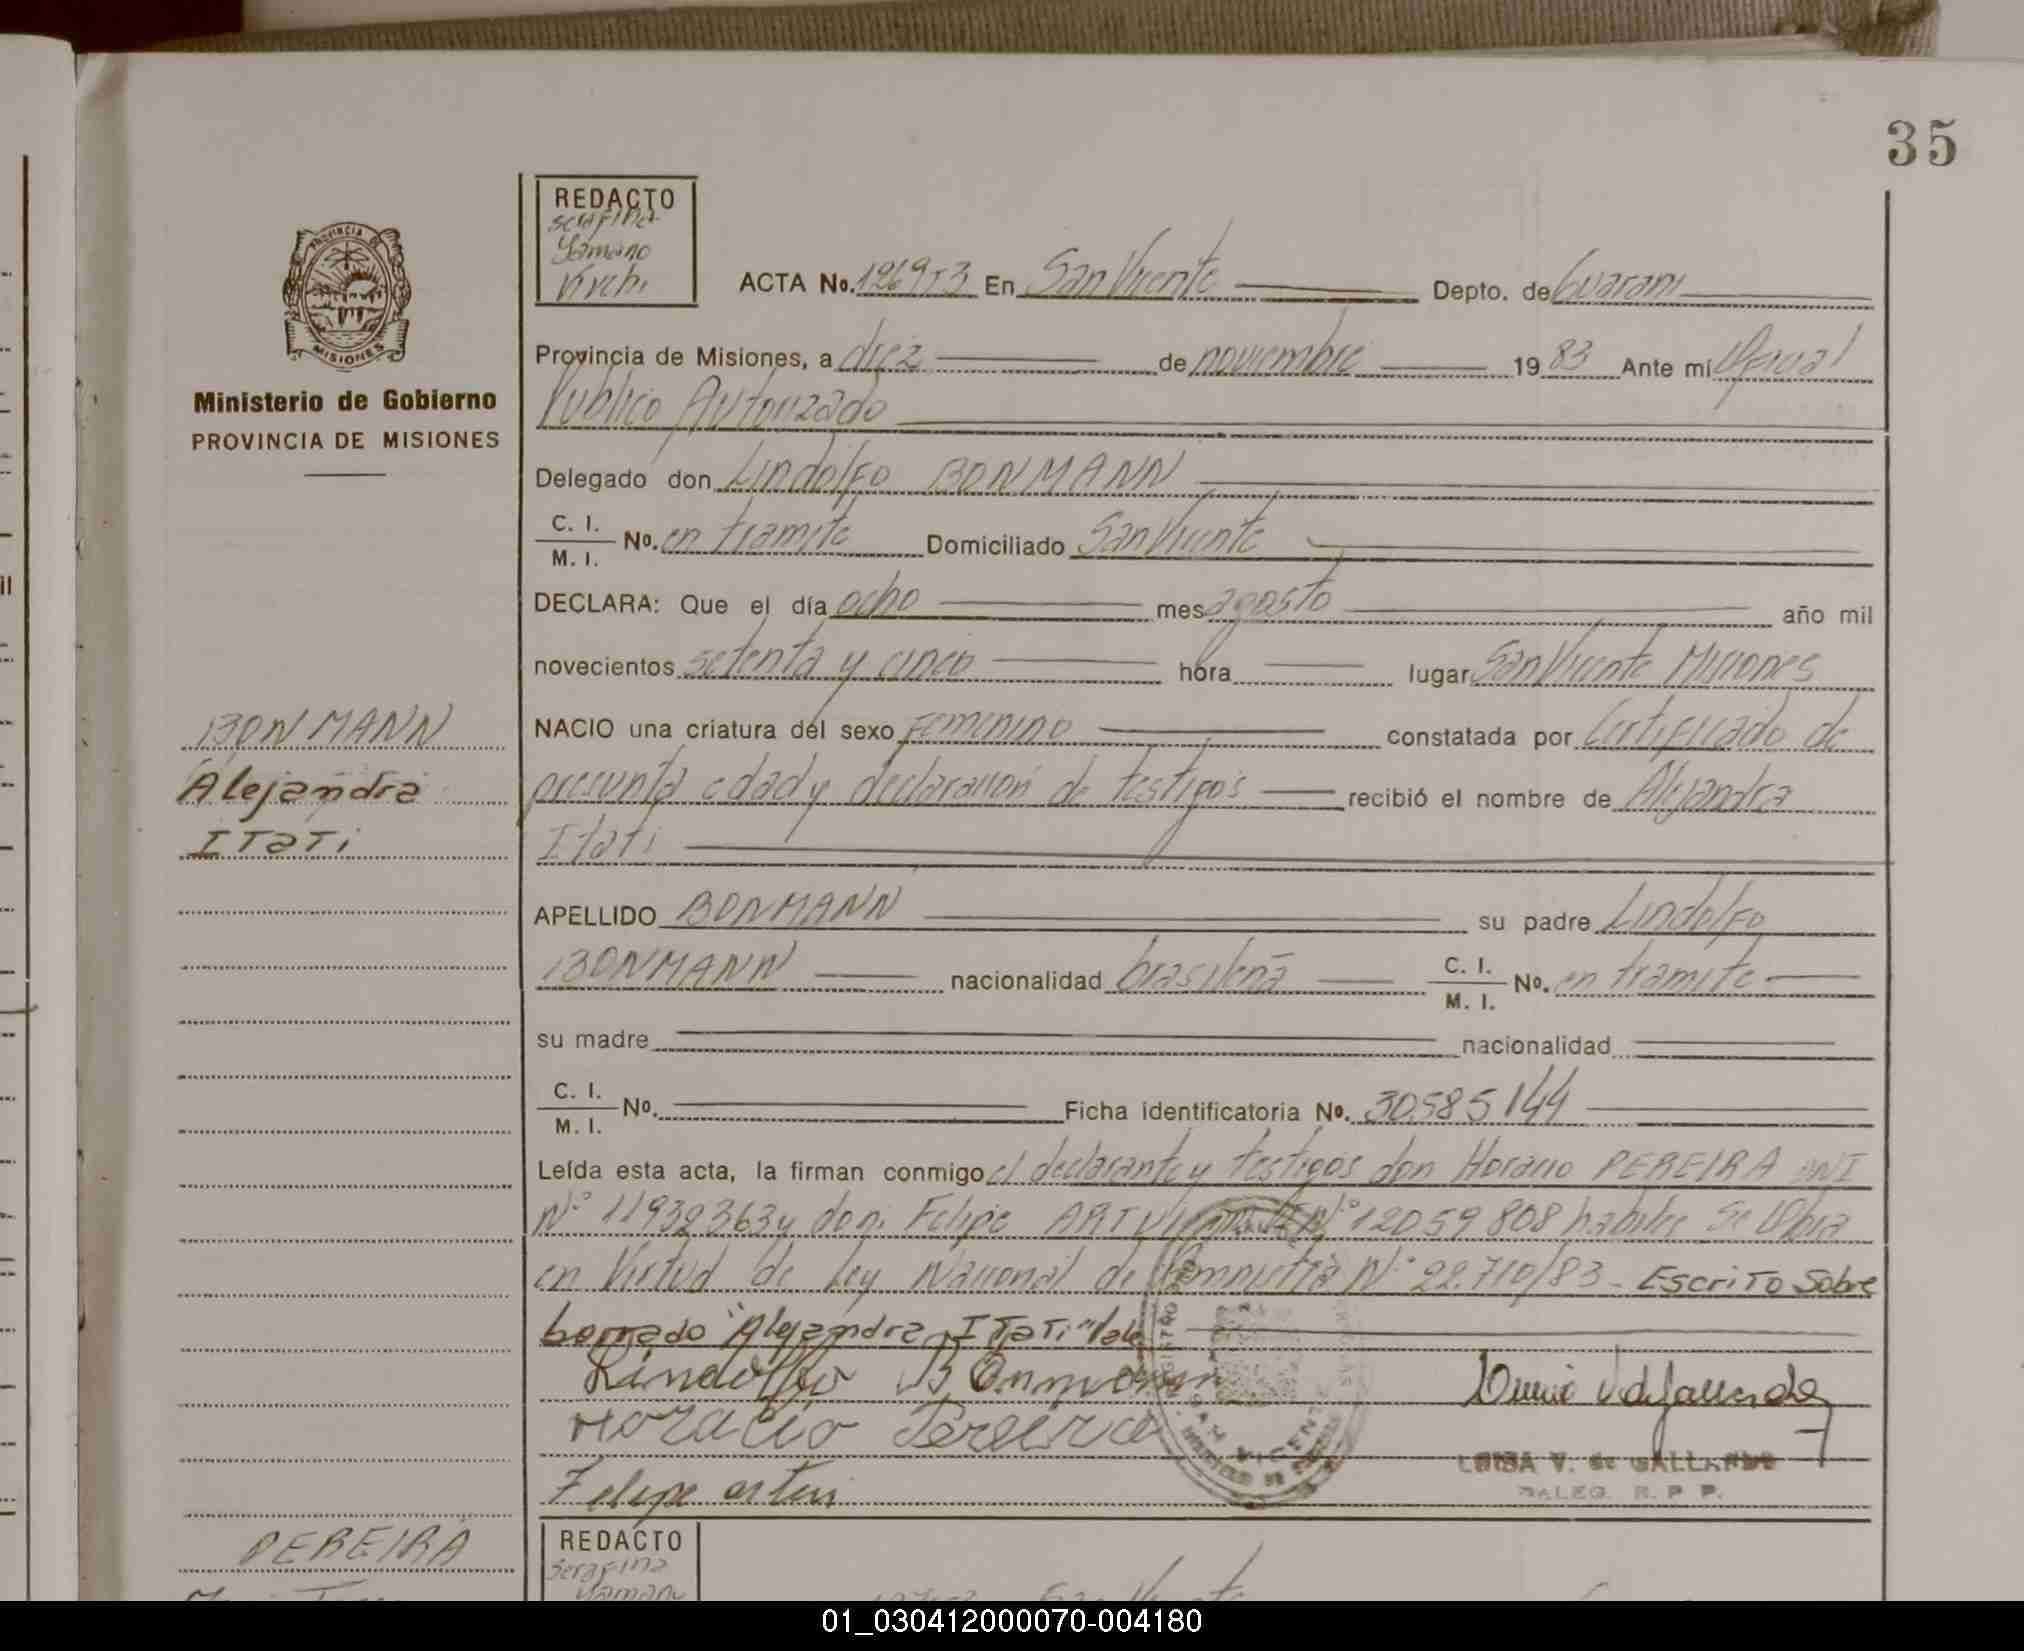 35
REDACTO
Serafina
Yamano
Kirchi
PROVINCIA DE
MISIONES
Ministerio de Gobierno
PROVINCIA DE MISIONES
ACTA No. 1269T3 En San Vicente Depto. de Guarani
Provincia de Misiones, a diez de noviembre 19 83 Ante mi Oficial
Publico Autorizado
Delegado don Lindolfo BONMANN
C. I.
M. I. No. en tramite Domiciliado San Vicente
DECLARA: Que el día ocho mes agosto año mil
novecientos setenta y cinco hora lugar San Vicente Misiones
NACIO una criatura del sexo Femenino constatada por Certificado de
presunta edad y declaración de testigos recibió el nombre de Alejandra
Itati
BONMANN
Alejandra
ITaTi
APELLIDO BONMANN su padre Lindolfo
BONMANN nacionalidad brasileña C. I.
M. I. No. en tramite
su madre nacionalidad
C. I.
M. I. No. Ficha identificatoria No. 30.585144
Leída esta acta, la firman conmigo el declarante y testigos don Horacio PEREIRA DNI
N° 11932363 y don Felipe N° 12059808 habiles Se labra
en Virtud de Ley Nacional de Amnistia N° 22.710/83 - Escrito Sobre
borrado "Alejandra ITaTi" Vale
Lindolfo Bonmann
Horacio Pereira
Felipe
LUISA V. de GALLARDO
DALEG. R. P. P.
SAN VICENTE
PEREIRA
REDACTO
Serafina
Yamano
San Vicente
01_030412000070-004180